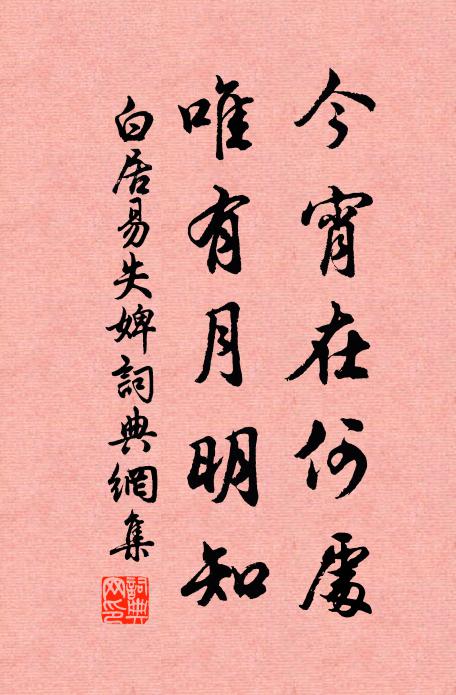 今宵在何處
唯有月明知
白居易失婢詞典網集
詞典网印